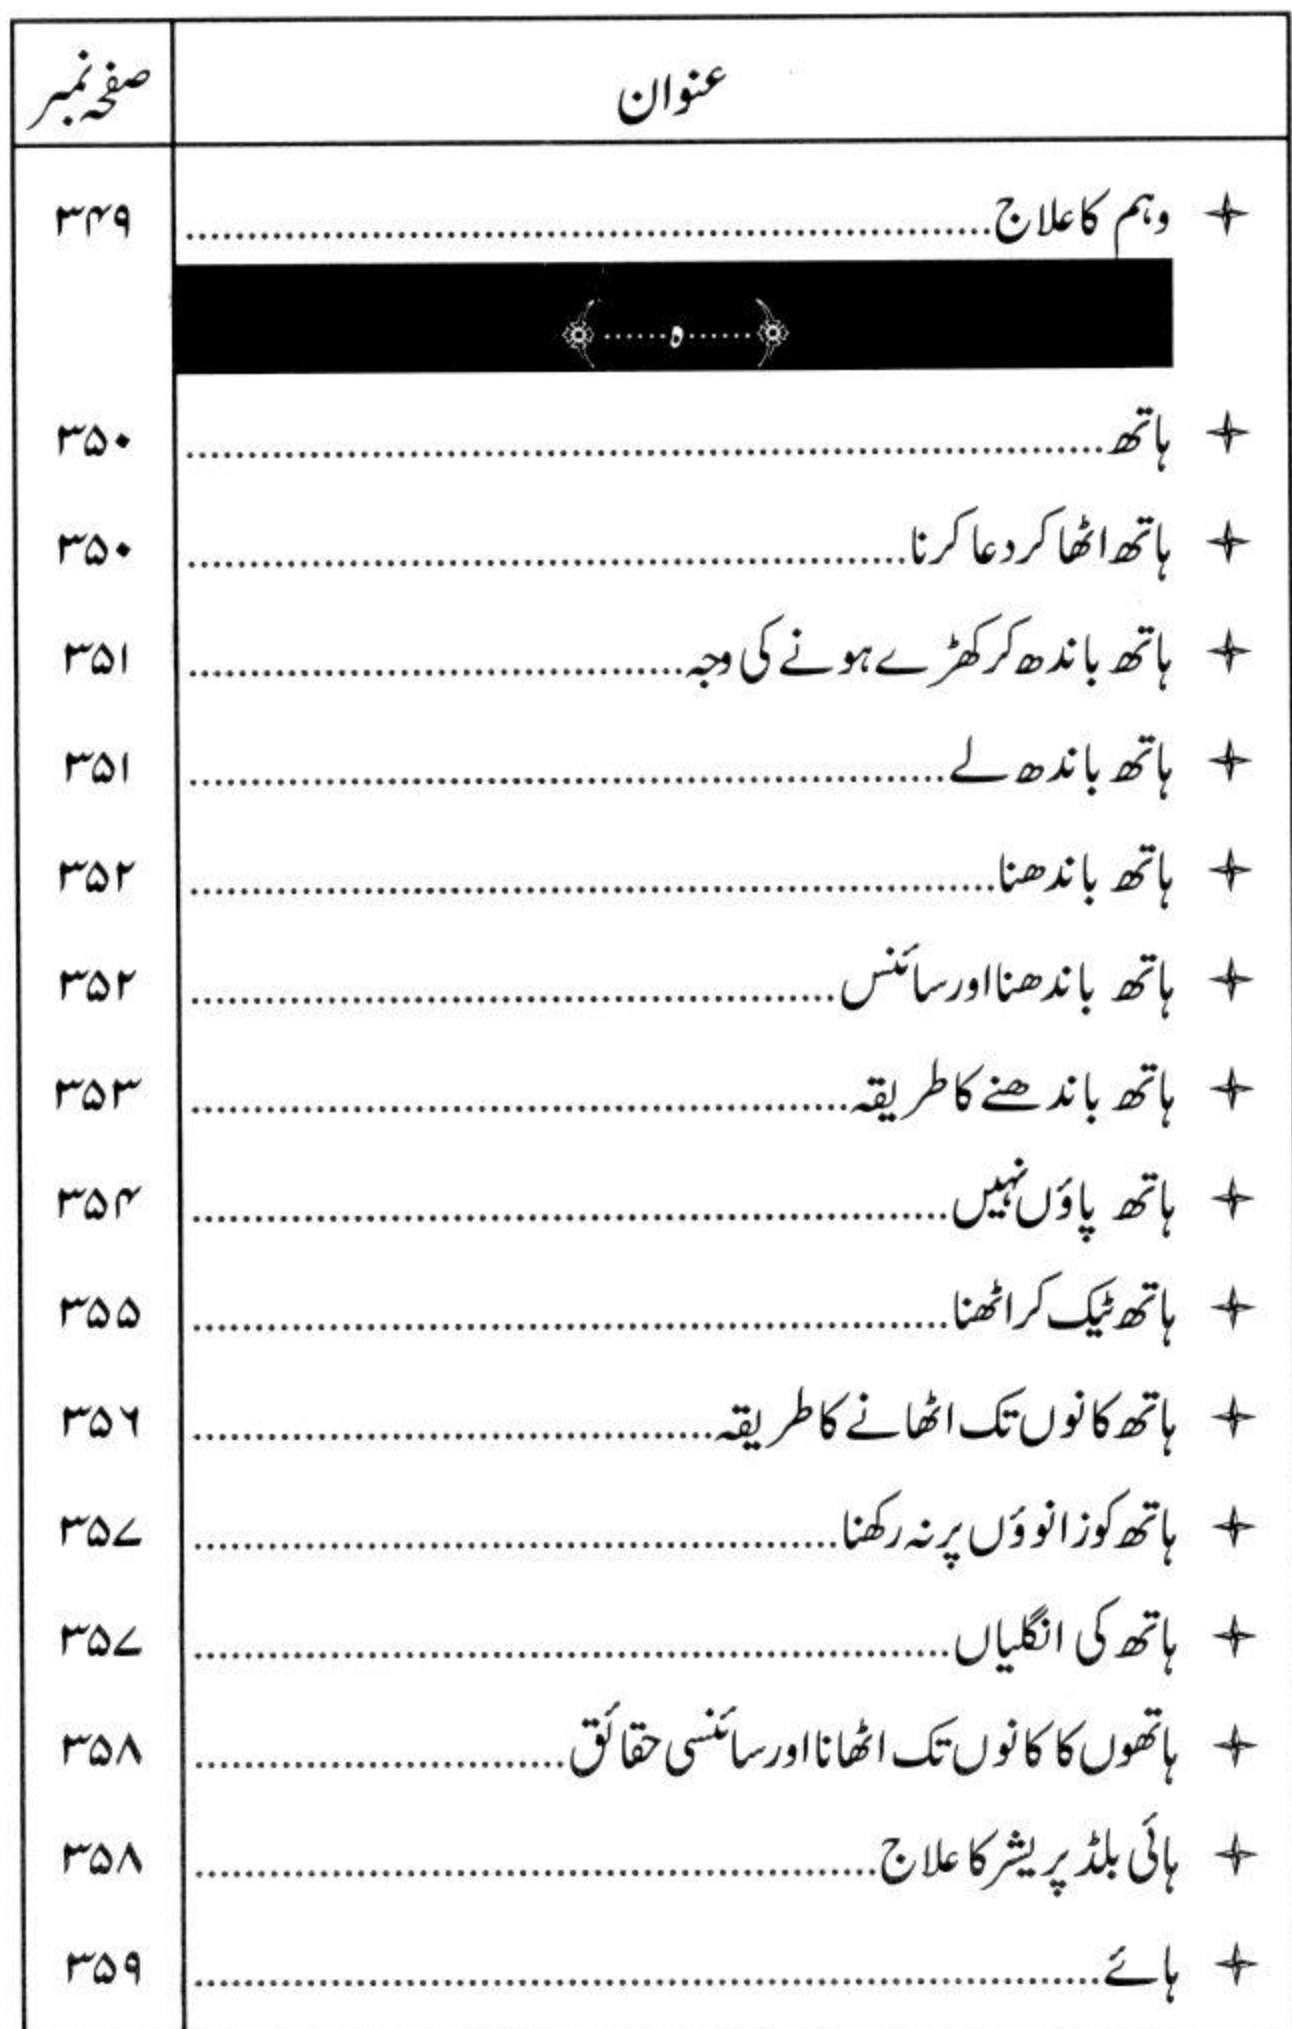 عنوان صفحہ نمبر
وہم کا علاج ۳۴۹
ہ
ہاتھ ۳۵۰
ہاتھ اٹھا کر دعا کرنا ۳۵۰
ہاتھ باندھ کر کھڑے ہونے کی وجہ ۳۵۱
ہاتھ باندھ لے ۳۵۱
ہاتھ باندھنا ۳۵۲
ہاتھ باندھنا اور سائنس ۳۵۲
ہاتھ باندھنے کا طریقہ ۳۵۳
ہاتھ پاؤں نہیں ۳۵۴
ہاتھ ٹیک کر اٹھنا ۳۵۵
ہاتھ کانوں تک اٹھانے کا طریقہ ۳۵۶
ہاتھ کو زانوؤں پر نہ رکھنا ۳۵۷
ہاتھ کی انگلیاں ۳۵۷
ہاتھوں کا کانوں تک اٹھانا اور سائنسی حقائق ۳۵۸
ہائی بلڈ پریشر کا علاج ۳۵۸
ہائے ۳۵۹